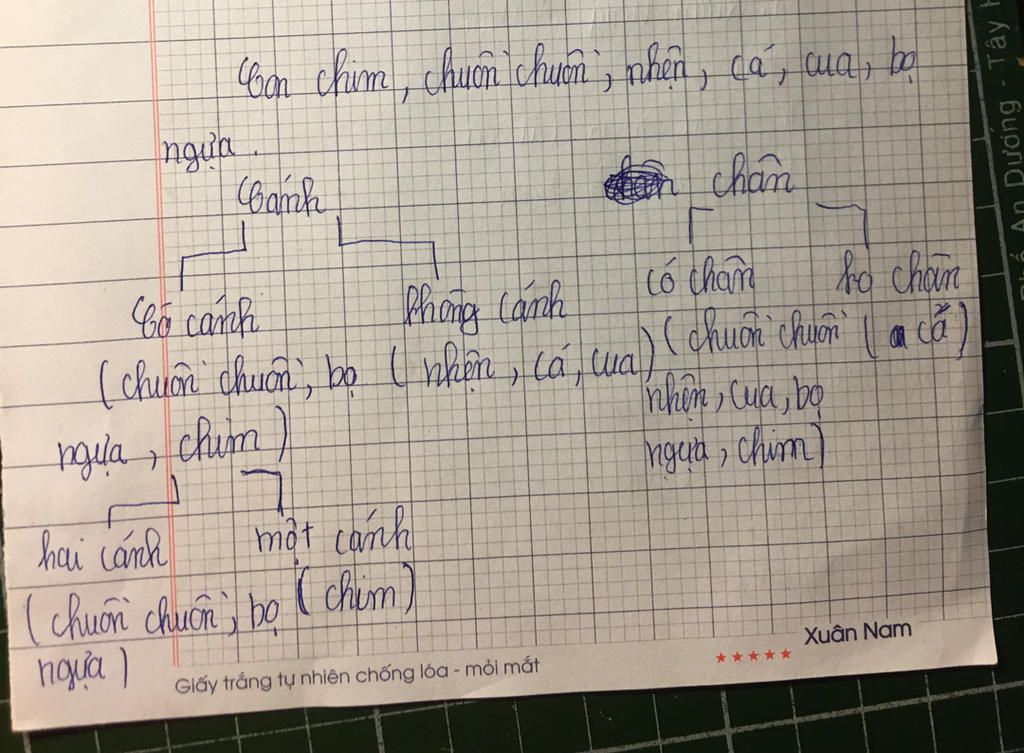 Con chim, chuồn chuồn, nhện, cá, cua, bọ
ngựa.
Cánh
Có cánh
không cánh
(chuồn chuồn, bọ
ngựa, chim)
(nhện, cá, cua)
hai cánh
(chuồn chuồn, bọ
ngựa)
một cánh
(chim)
chân
có chân
(chuồn chuồn
nhện, cua, bọ
ngựa, chim)
ko chân
(cá)
Giấy trắng tự nhiên chống lóa - mỏi mắt
★★★★★
Xuân Nam
An Dương - Tây H